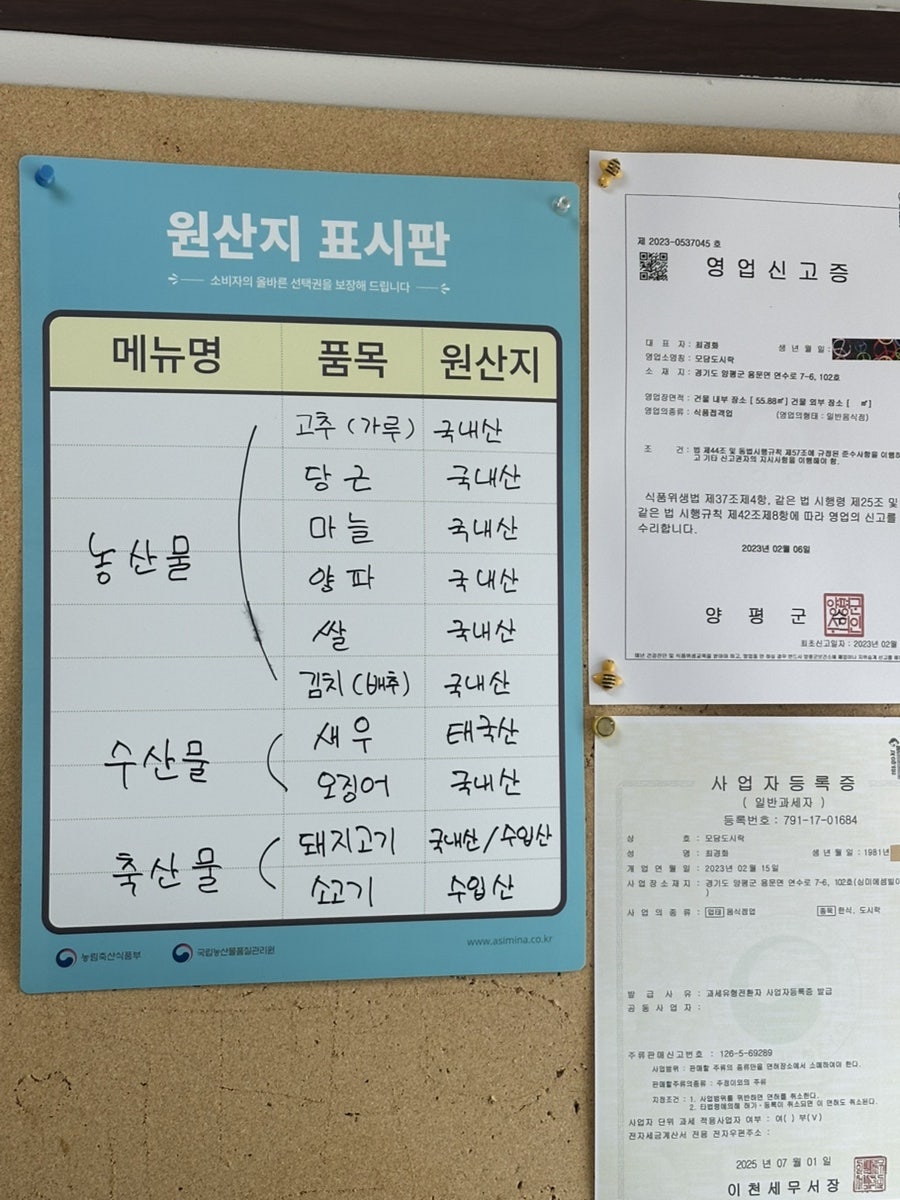 원산지 표시판
소비자의 올바른 선택권을 보장해 드립니다
메뉴명 품목 원산지
농산물
고추 (가루) 국내산
당근 국내산
마늘 국내산
양파 국내산
쌀 국내산
김치 (배추) 국내산
수산물
새우 태국산
오징어 국내산
축산물
돼지고기 국내산/수입산
소고기 수입산
농림축산식품부
국립농산물품질관리원
www.asimina.co.kr
제 2023-0537045 호
영업신고증
대 표 자 : 최경화 생 년 월 일 :
영업소명칭 : 모담도시락
소 재 지 : 경기도 양평군 용문면 연수로 7-6, 102호
영업장면적 : 건물 내부 장소 [ 55.88㎡] 건물 외부 장소 [ ㎡]
영업의종류 : 식품접객업 (영업의형태 : 일반음식점)
조 건 : 법 제44조 및 동법시행규칙 제57조에 규정된 준수사항을 이행하
고 기타 신고관자의 지시사항을 이행해야 함.
식품위생법 제37조제4항, 같은 법 시행령 제25조 및
같은 법 시행규칙 제42조제8항에 따라 영업의 신고를
수리합니다.
2023년 02월 06일
양 평 군 수
최초신고일자 : 2023년 02월
사업자등록증
( 일반과세자 )
등록번호 : 791-17-01684
상 호 : 모담도시락
성 명 : 최경화 생 년 월 일 : 1981년
개 업 연 월 일 : 2023년 02월 15일
사 업 장 소 재 지 : 경기도 양평군 용문면 연수로 7-6, 102호
)
사 업 의 종 류 : 업태 음식점업 종목 한식, 도시락
발 급 사 유 : 과세유형전환자 사업자등록증 발급
공 동 사 업 자 :
주류판매신고번호 : 126-5-69289
사업범위 : 판매할 주류의 종류만을 면허장소에서 소매하여야 한다.
판매할주류의종류 : 주정이외의 주류
지정조건 : 1. 사업범위를 위반하면 면허를 취소한다.
2. 타법령에의해 허가·등록이 취소되면 이 면허도 취소된다.
사업자 단위 과세 적용사업자 여부 : 여( ) 부(V)
전자세금계산서 전용 전자우편주소 :
2025 년 07 월 01 일
이천세무서장